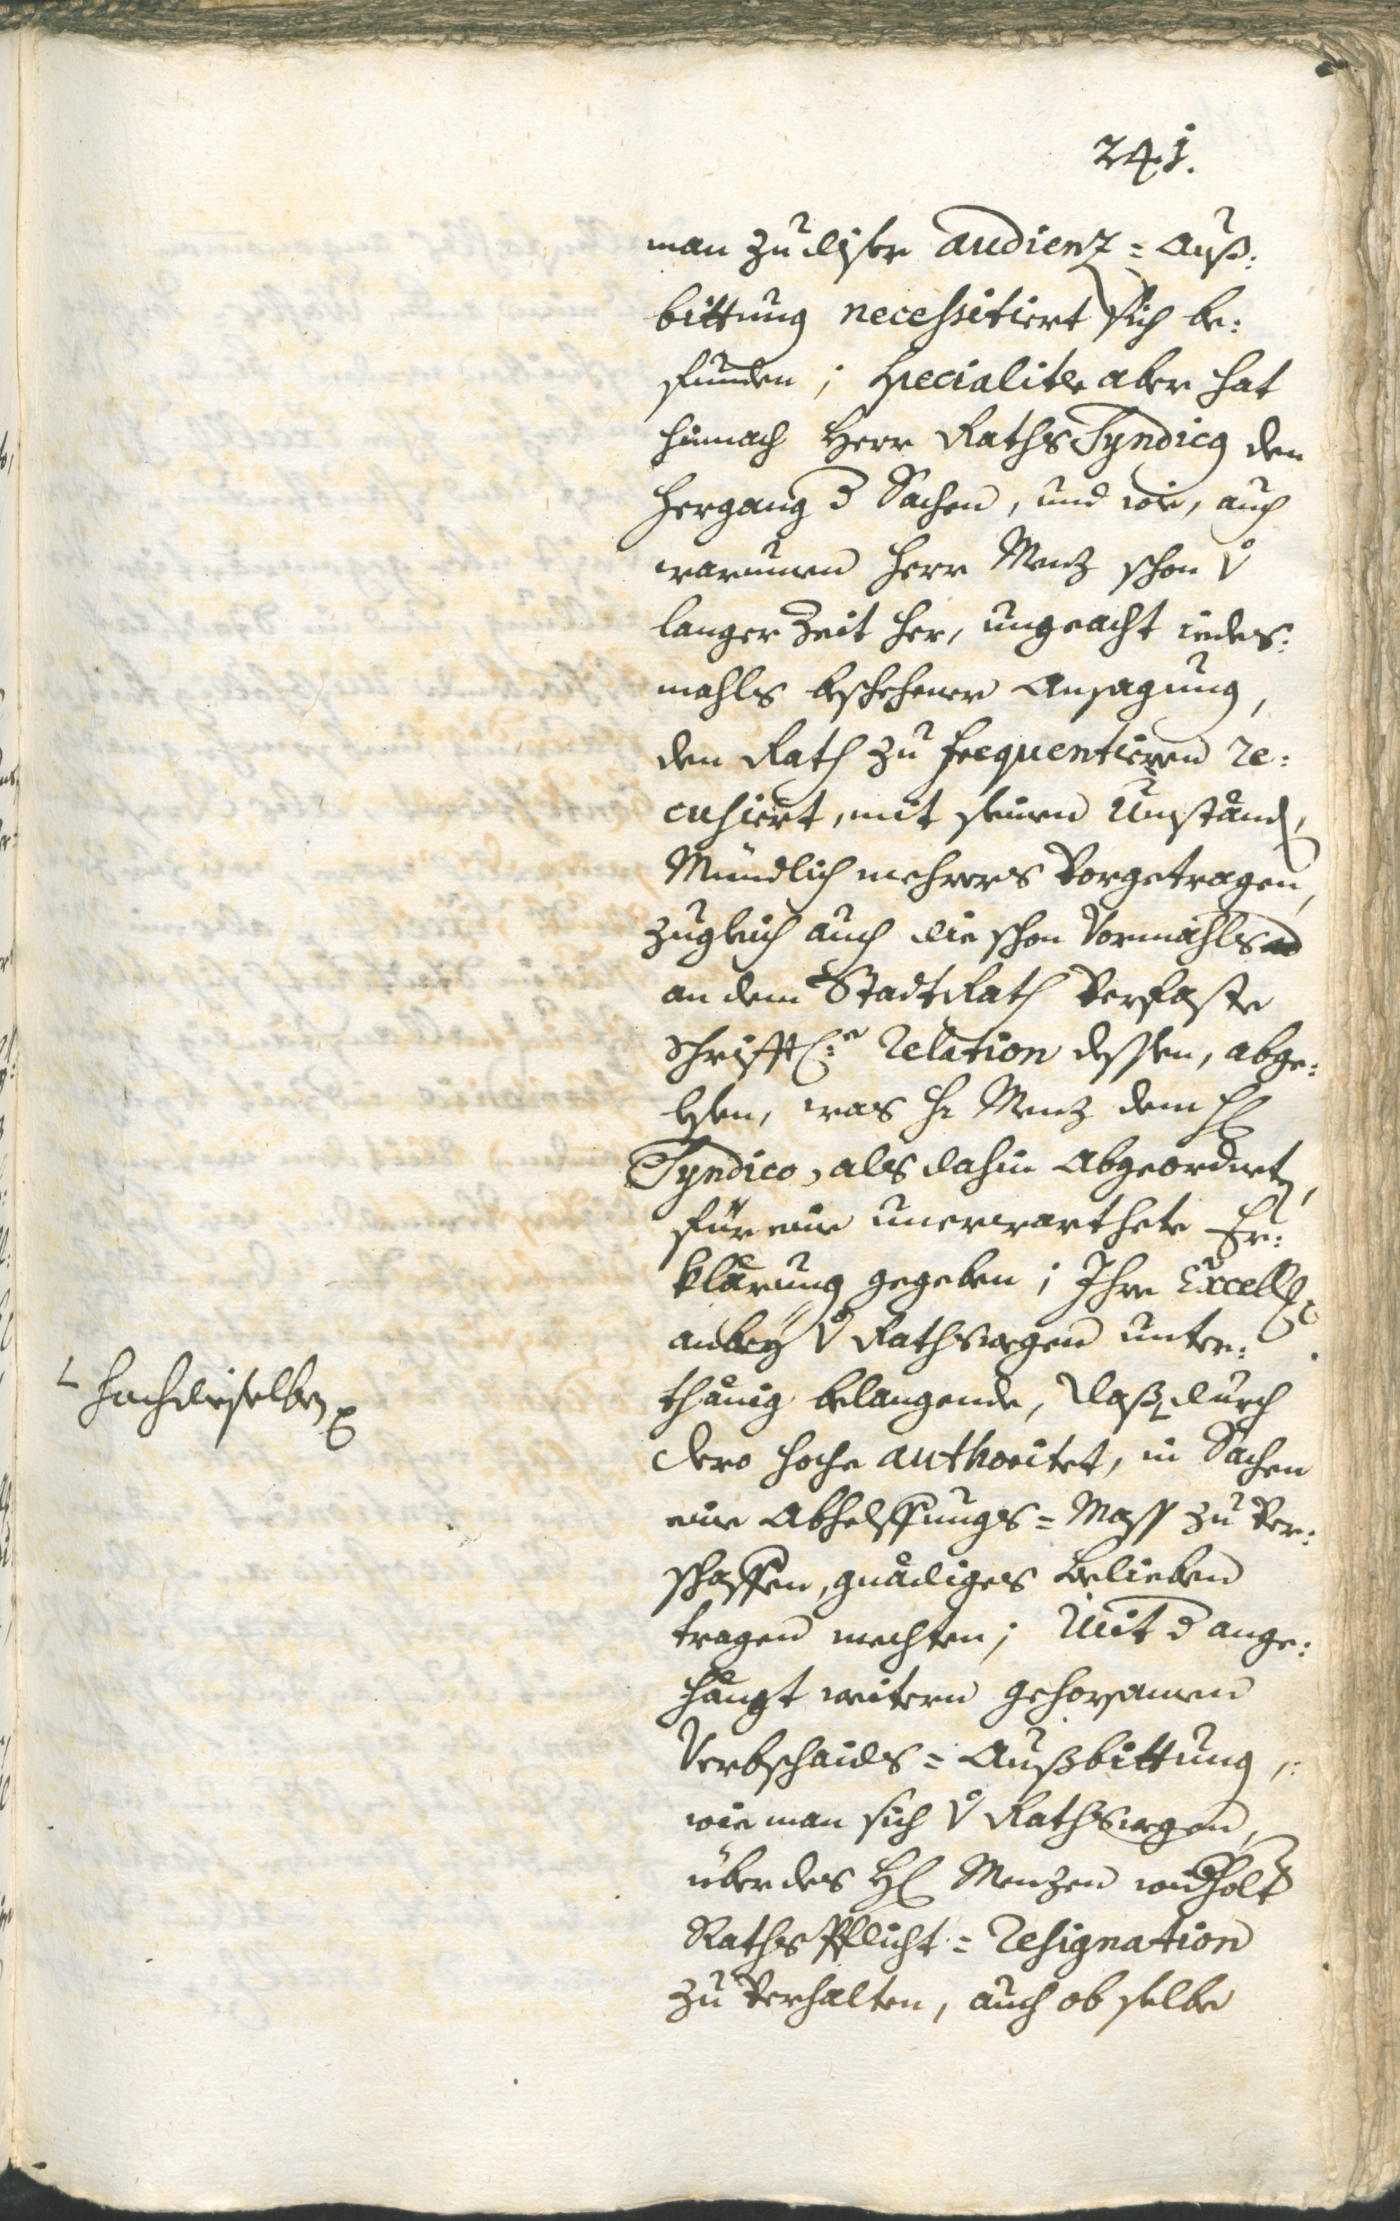 241.
man zu diser audienz = Auß:
bittung necessitiert sich be:
funden; specialiter aber hat
hinnach Herr Raths Syndicq den
Hergang d Sachen, und wie, auch
warumen Herr Menz schon v̊
langer Zeit her, ungeacht iedes:
mahls beschehener Ansagung,
den Rath zu frequentieren re:
cusiert, mit seinen Umständ,
Mündlich mehrers Vorgetragen,
zugleich auch die schon Vormahls
an dem StadtRath Verfaste
schrifftl:e relation dessen, abge:
lesen, was H. Menz dem H
Syndico, als dahin Abgeordnet,
für eine unerwarthete Er:
klärung gegeben; Ihre Excell:
anbey v̊ Rathswegen unter:
thänig belangende, daß ∟ durch
∟ hochdieselben
dero hoche authoritet, in Sachen
eine Abhelffungs = Mass zu Ver:
schaffen, gnädiges Belieben
tragen mechten; Mit d ange:
hängt weitern gehorsamen
Verbschaids = Außbittung,
wie man sich v̊ Rathswegen,
über des H Menzen widholt
Raths Pflicht = resignation
zu Verhalten, auch ob selbe